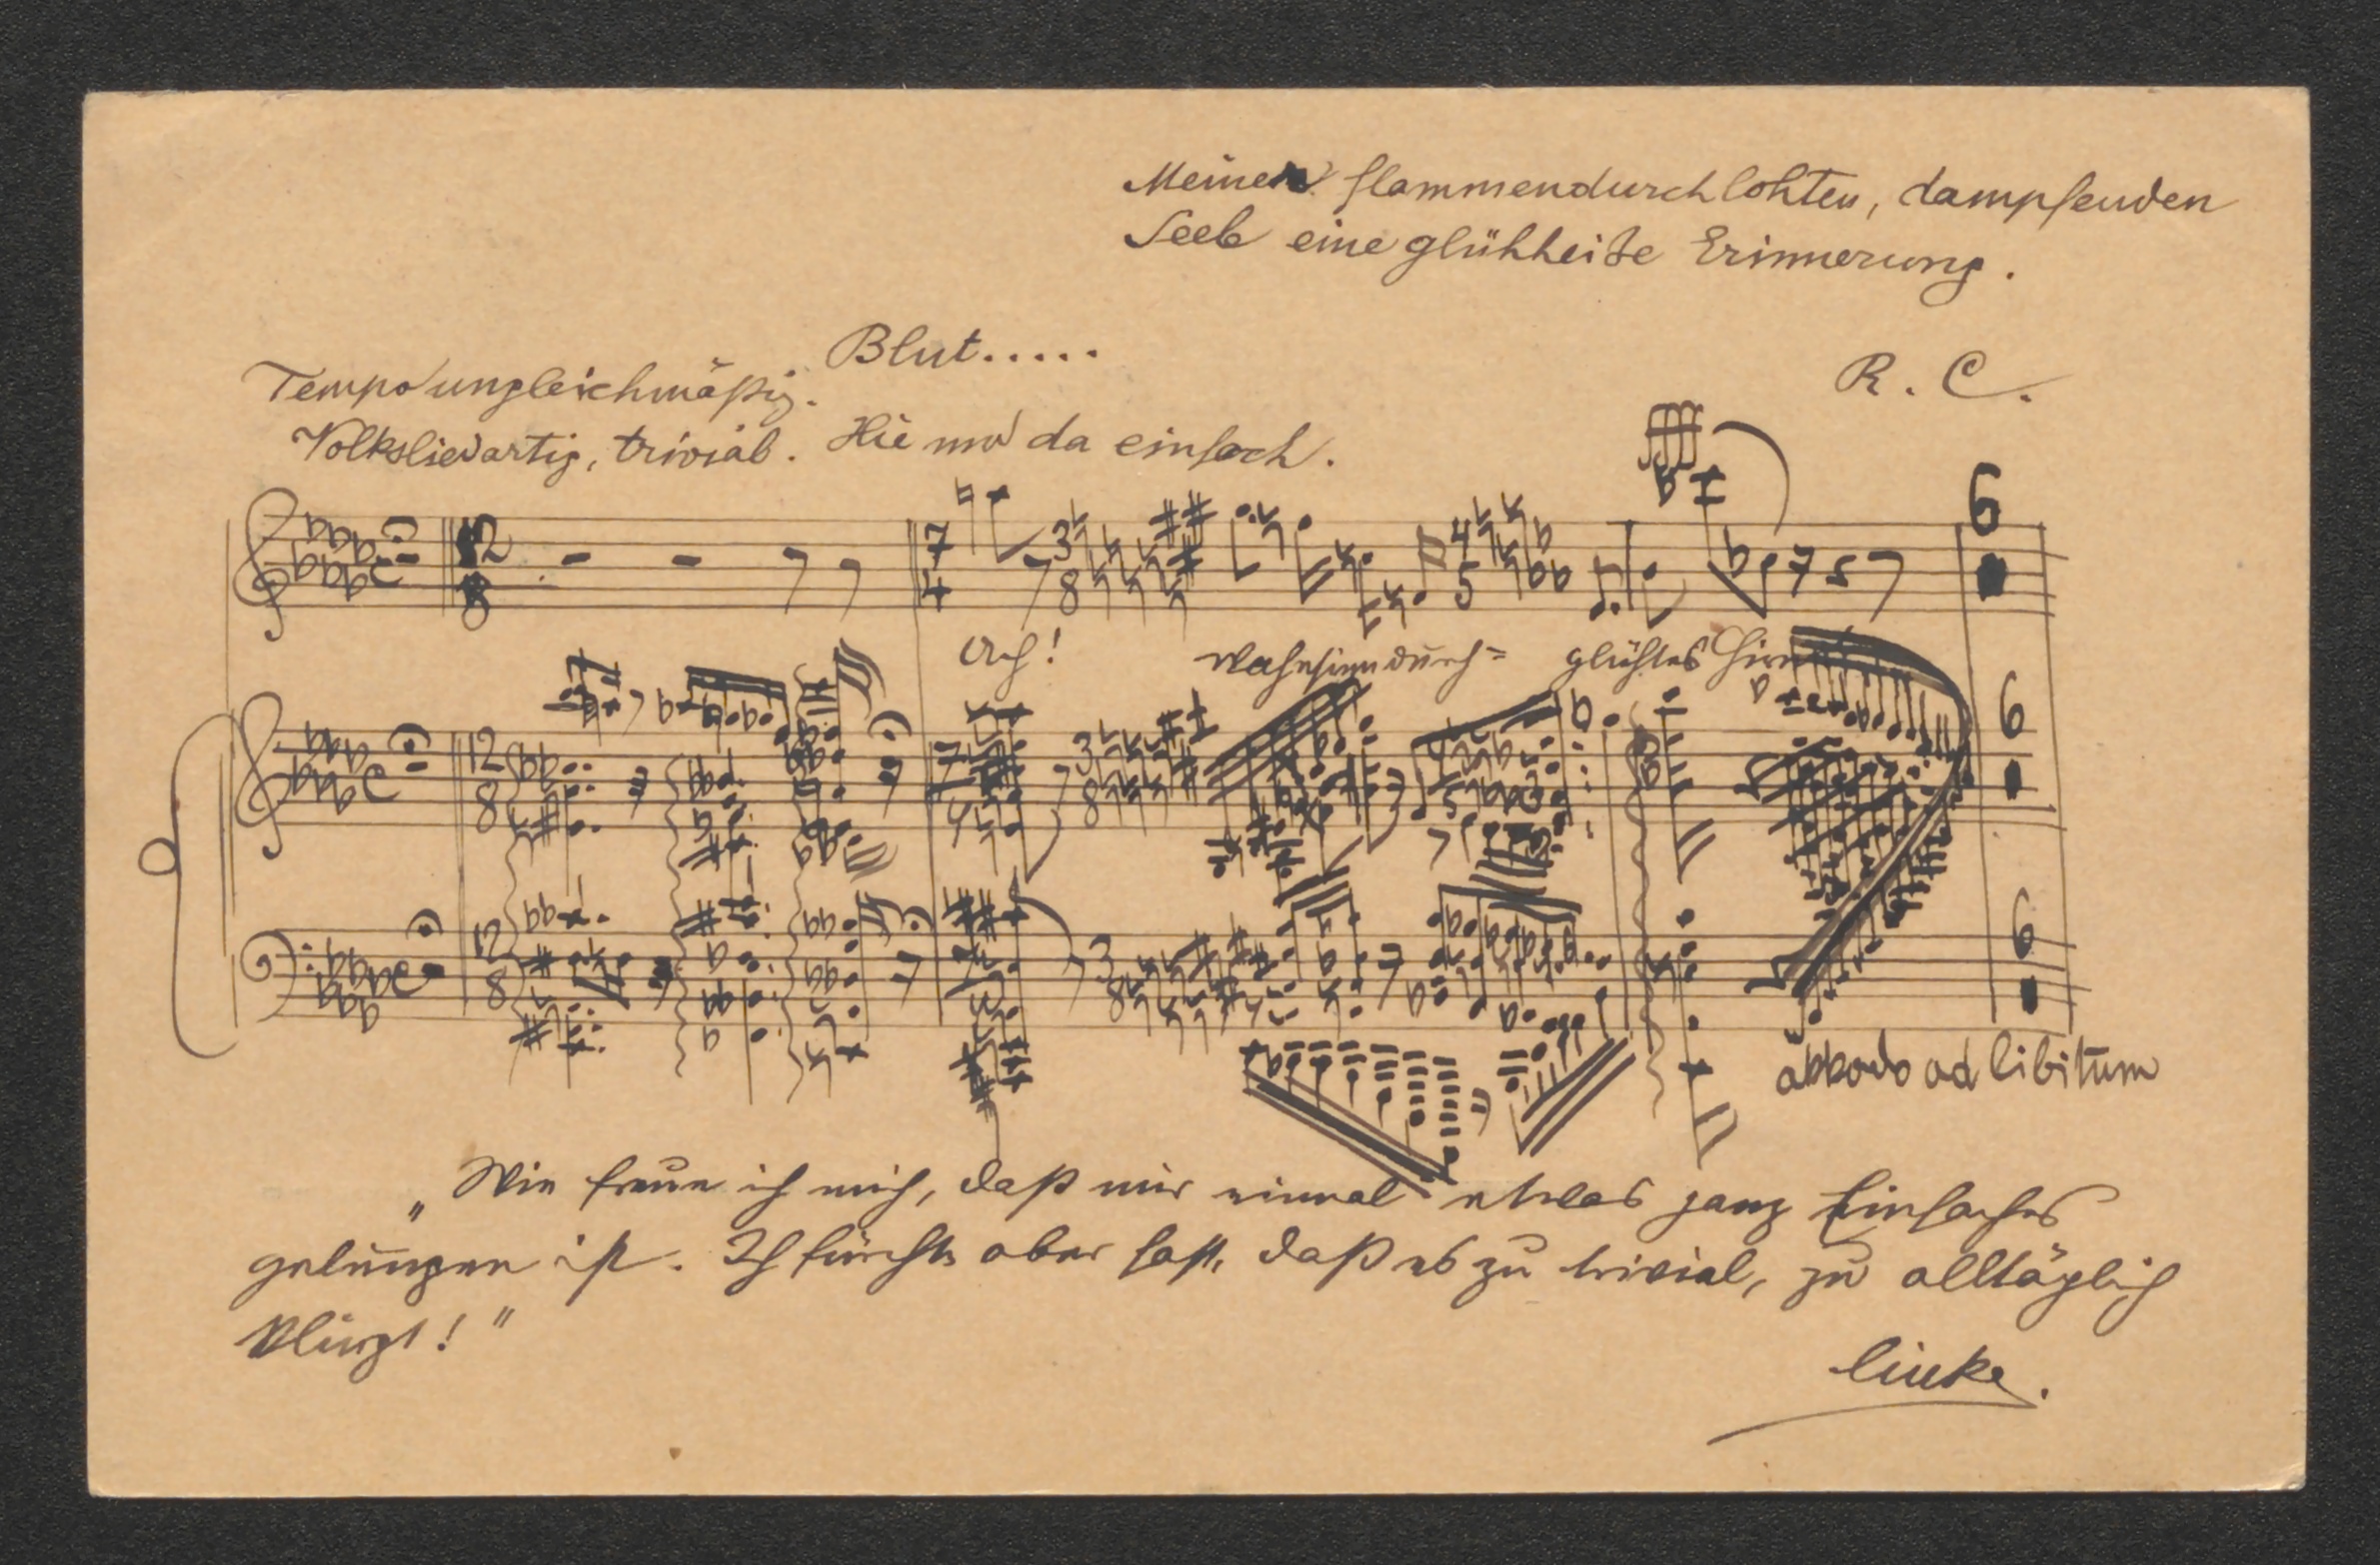 Meiner flammendurchlohten, dampfenden
Seele eine glühheiße Erinnerung.
Blut.....
R. C.
Tempo ungleichmäßig.
Volksliedartig, trivial. Hie und da einfach.
12
8
7
4
3
8
4
5
6
Ach! Wahnsinndurch= glühtes Hirn
12
8
7
4
3
8
6
12
8
3
8
6
akkordo ad libitum
„Wie freue ich mich, daß mir einmal etwas ganz Einfaches
gelungen ist. Ich fürchte aber fast, daß es zu trivial, zu alltäglich
klingt!"
Lincke.